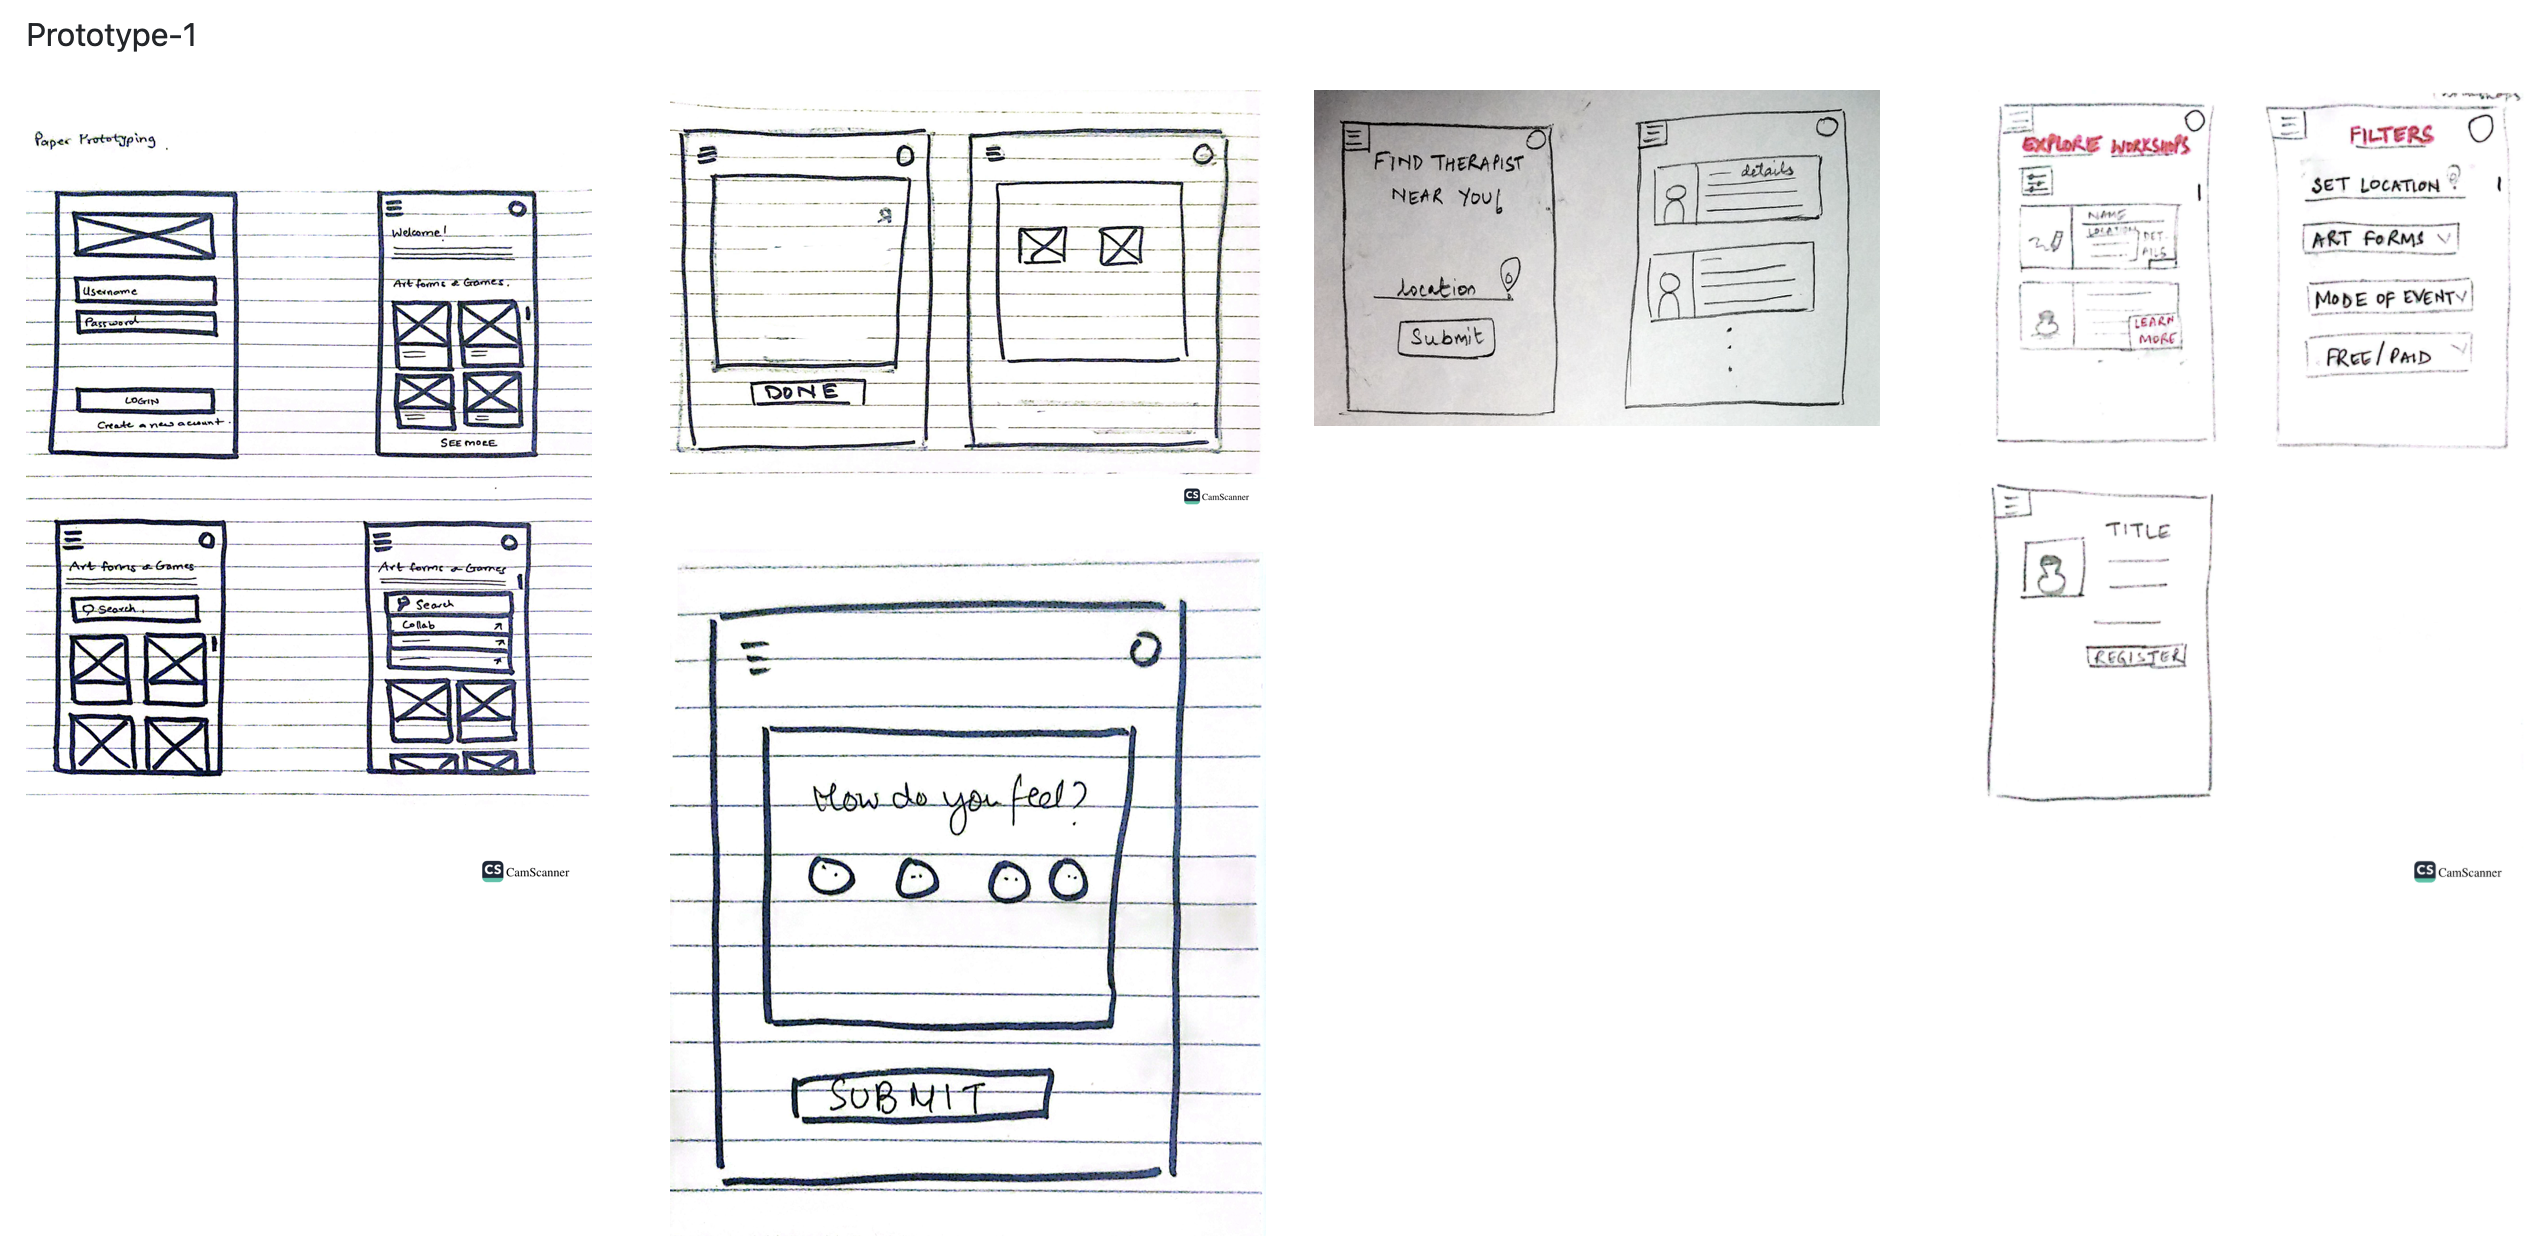 Prototype-1
Paper Prototyping
Username
Password
LOGIN
Create a new account.
Welcome!
Art forms & Games.
SEE MORE
Art forms & Games
Search
Art forms & Games
Search
Collab
CS CamScanner
DONE
CS CamScanner
How do you feel?
SUBMIT
FIND THERAPIST
NEAR YOU!
location
Submit
details
EXPLORE WORKSHOPS
NAME
LOCATION
DET
AILS
LEARN
MORE
FILTERS
SET LOCATION
ART FORMS
MODE OF EVENT
FREE/PAID
TITLE
REGISTER
CS CamScanner